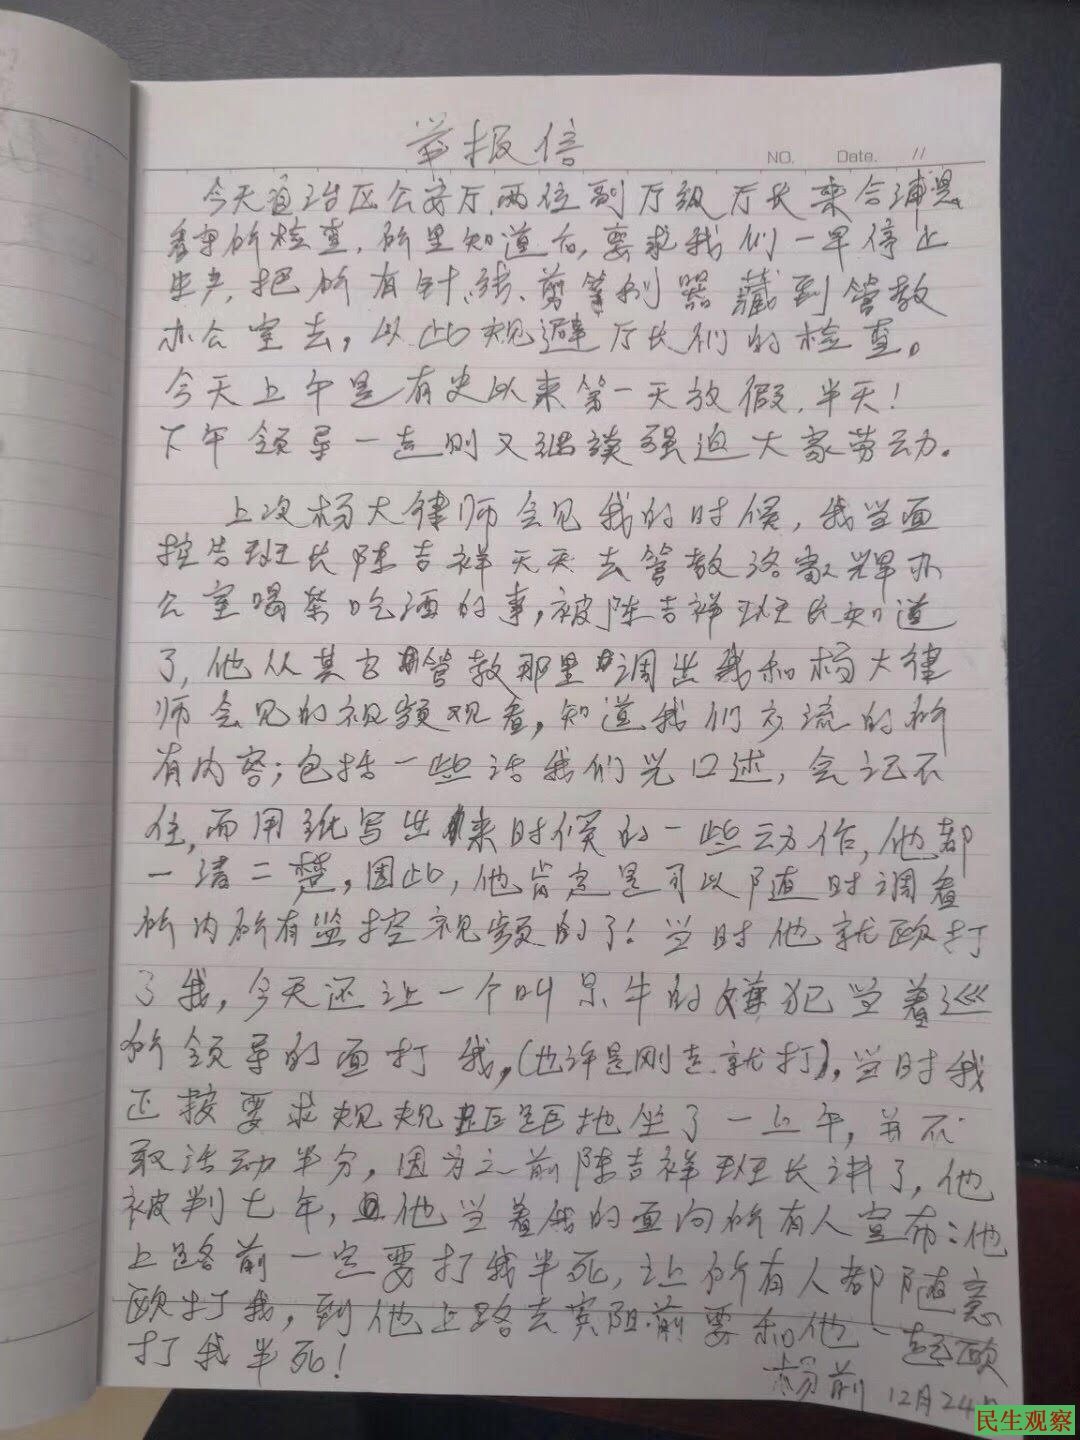 举报信
NO. Date. 11
今天自治区公安厅,两位副厅级厅长来合浦县
看守所检查,所里知道后,要求我们一早停止
生产,把所有针、线、剪等利器藏到管教
办公室去,以此规避厅长们的检查。
今天上午是有史以来第一天放假,半天!
下午领导一走则又继续强迫大家劳动。
上次杨大律师会见我的时候,我当面
控告班长陈吉祥天天去管教洛家辉办
公室喝茶吃酒的事,被陈吉祥班长知道
了,他从其它管教那里调出我和杨大律
师会见的视频观看,知道我们交流的所
有内容;包括一些话我们光口述,会记不
住,而用纸写出来时候的一些动作,他都
一清二楚,因此,他肯定是可以随时调看
所内所有监控视频的了!当时他就殴打
了我,今天还让一个叫 牛的嫌犯当着巡
所领导的面打我,(也许是刚走就打),当时我
正按要求规规矩矩地坐了一上午,并不
敢活动半分,因为之前陈吉祥班长讲了,他
被判七年,且他当着我的面向所有人宣布:他
上路前一定要打我半死,让所有人都随意
殴打我,到他上路去贵阳前要和他一起殴
打我半死!
杨前 12月24日
民生观察